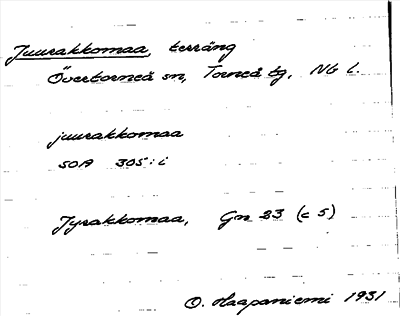 Juurakkomaa, terräng
Övertorneå sn, Torneå tg, Nb l.
juurakkomaa
SOA 305:i
Jyrakkomaa, Gn 23 (c 5)
O. Haapaniemi 1931